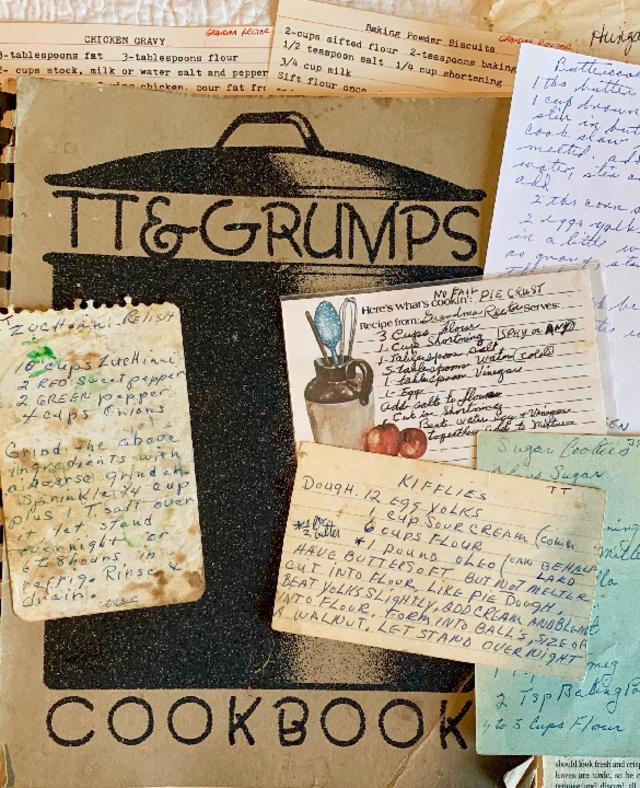 CHICKEN GRAVY
GRANDMA RECTOR
3-tablespoons fat 3-tablespoons flour
2- cups stock, milk or water salt and pepper
chicken, pour fat
Baking Powder Biscuits
GRANDMA RECTOR
2-cups sifted flour 2-teaspoons baking
1/2 teaspoon salt 1/4 cup shortening
3/4 cup milk
Sift flour once
1 tbs butter
1 cup brown
cook slow
melted. add
water, stir
add
2 tbs corn
2 eggs yolk
in a little
TT&GRUMPS
COOKBOOK
ZUCHINNI RELISH
10 cups ZUCHINNI
2 RED Sweet pepper
2 GREEN pepper
4 cups Onions
Grind the above
ingredients with
a coarse grinder.
Sprinkle 1/4 cup
plus 1 T. salt over
it, let stand
overnight or
6 to 8 hours in
refrig. Rinse &
drain.
over
Here's what's cookin': NO FAIL PIE CRUST
Recipe from: Grandma Rector Serves:
3 Cups flour
1 Cup Shortning
1- Tablespoon Salt
5 tablespoons Water (cold)
1 tablespoon Vinegar
1- Egg
Add salt to flour
Cut in Shortning
Beat water egg & Vinegar
together Add to Mixture
KIFFLIES
TT
DOUGH. 12 EGG YOLKS
1 CUP SOUR CREAM
6 CUPS FLOUR
*1 POUND OLEO (CAN BE HALF
LARD
HAVE BUTTER SOFT BUT NOT MELTED
CUT INTO FLOUR, LIKE PIE DOUGH,
BEAT YOLKS SLIGHTLY, ADD CREAM AND BLEND
INTO FLOUR. FORM INTO BALLS, SIZE OF
A WALNUT. LET STAND OVERNIGHT
Sugar Cookies
Sugar
2 Tsp Baking Po
4 to 5 Cups Flour
should look fresh and crisp
leaves are toxic, so be